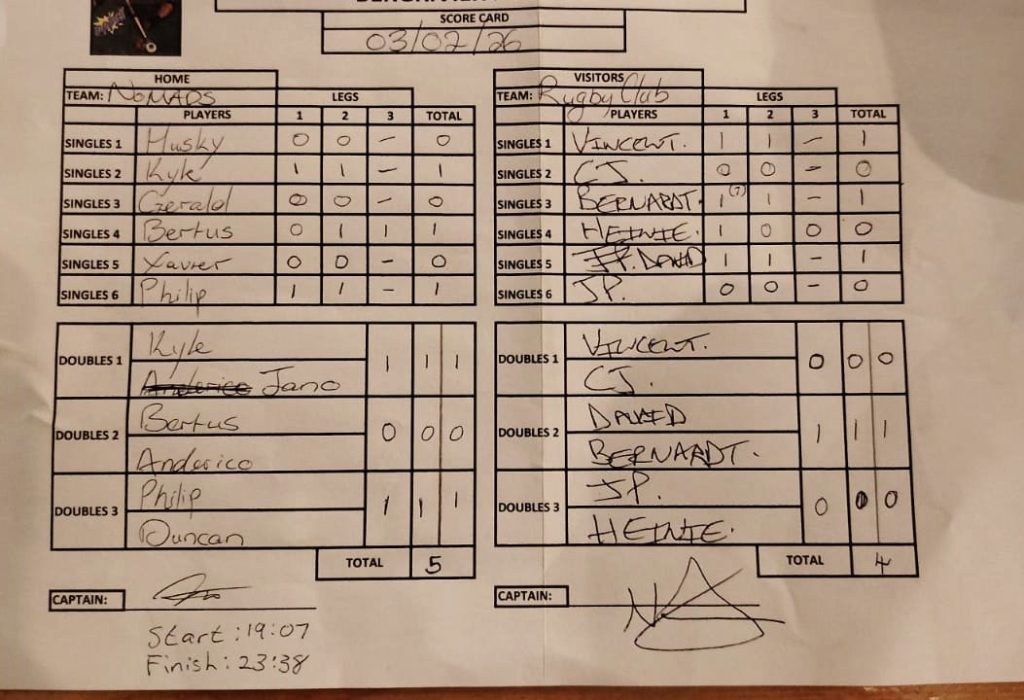 SCORE CARD
03/02/26
HOME
TEAM: NOMADS LEGS
PLAYERS 1 2 3 TOTAL
SINGLES 1 Husky 0 0 - 0
SINGLES 2 Kyle 1 1 - 1
SINGLES 3 Gerald 0 0 - 0
SINGLES 4 Bertus 0 1 1 1
SINGLES 5 Xavier 0 0 - 0
SINGLES 6 Philip 1 1 - 1
DOUBLES 1 Kyle 1 1 1
Anderico Jano
DOUBLES 2 Bertus 0 0 0
Anderico
DOUBLES 3 Philip 1 1 1
Duncan
TOTAL 5
CAPTAIN:
Start : 19:07
Finish : 23:38
VISITORS
TEAM: Rugby Club LEGS
PLAYERS 1 2 3 TOTAL
SINGLES 1 VINCENT. 1 1 - 1
SINGLES 2 CJ. 0 0 - 0
SINGLES 3 BERNARDT. 1 (7) 1 - 1
SINGLES 4 HEINIE. 1 0 0 0
SINGLES 5 JP. DAWID 1 1 - 1
SINGLES 6 JP. 0 0 - 0
DOUBLES 1 VINCENT. 0 0 0
CJ.
DOUBLES 2 DAWID 1 1 1
BERNARDT.
DOUBLES 3 JP. 0 0 0
HEINIE.
TOTAL 4
CAPTAIN: